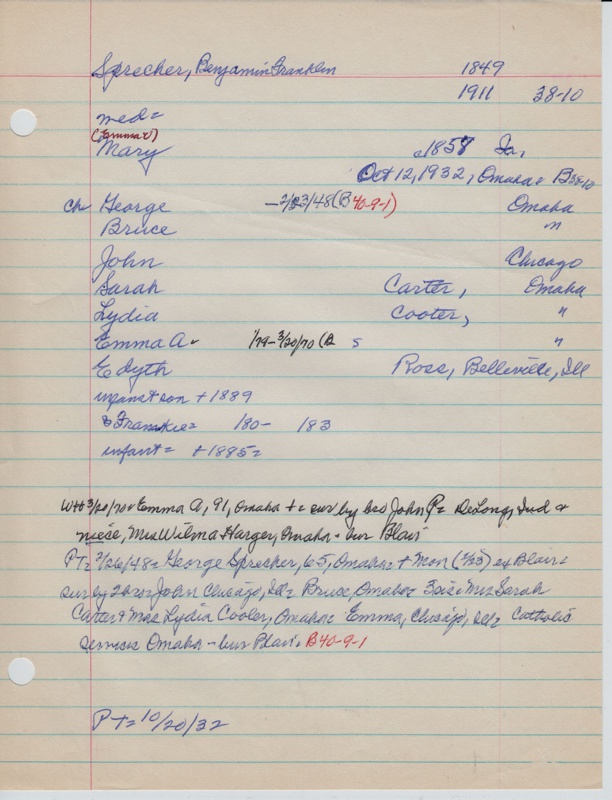 Sprecher, Benjamin Franklin 1849
1911 38-10
med=
(Emma?)
Mary c1858 Ia,
Oct 12, 1932, Omaha = B 38-10
ch George - 2/23/48 (B 40-9-1) Omaha
Bruce "
John Chicago
Sarah Carter, Omaha
Lydia Cooter, "
Emma A - 1/79 - 3/20/70 (B s "
Edyth Ross, Belleville, Ill
infant son + 1889
Frankie = 180- 183
infant = + 1885 =
WH 3/20/70 = Emma A, 91, Omaha + = sur by bro John P = DeLong, Ind &
niece, Mrs Wilma Harger, Omaha - bur Blair
PT = 2/26/48 = George Sprecher, 65, Omaha = + Mon (2/23) ex Blair =
sur by 2 bros John Chicago, Ill = Bruce, Omaha = 3 sis Mrs Sarah
Carter & Mrs Lydia Cooler, Omaha = Emma, Chicago, Ill = Catholic
services Omaha - bur Blair = B40-9-1
PT = 10/20/32